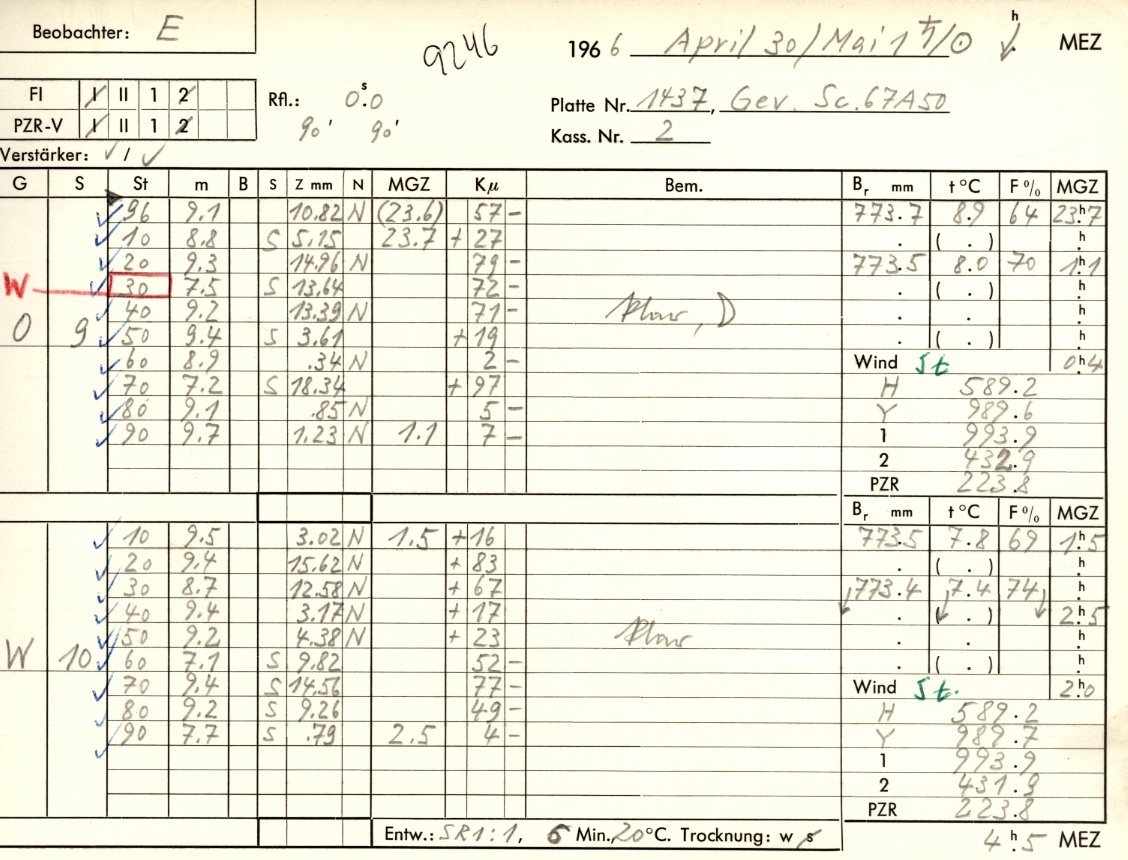 Beobachter: E
9246
1966 April 30/Mai 1 ♄/☉ h MEZ
FI I II 1 2
PZR-V I II 1 2
Rfl.: 0ˢ.0
90' 90'
Platte Nr. 1437, Gev. Sc. 67A50
Kass. Nr. 2
Verstärker: √ / √
G S St m B S Z mm N MGZ Kμ Bem. Bᵣ mm t °C F % MGZ
96 9.1 10.82 N (23.6) 57 – 773.7 8.9 64 23ʰ.7
10 8.8 S 5.15 23.7 + 27 . ( . ) h
20 9.3 14.96 N 79 – 773.5 8.0 70 1ʰ.1
W 30 7.5 S 13.64 72 – . ( . ) h
40 9.2 13.39 N 71 – klar, D . . h
O 9 50 9.4 S 3.61 + 19 . ( . ) h
60 8.9 .34 N 2 – Wind St 0ʰ.4
70 7.2 S 18.34 + 97 H 589.2
80 9.1 .85 N 5 – Y 989.6
90 9.7 1.23 N 1.1 7 – 1 993.9
2 432.9
PZR 223.8
Bᵣ mm t °C F % MGZ
10 9.5 3.02 N 1.5 + 16 773.5 7.8 69 1ʰ.5
20 9.4 15.62 N + 83 . ( . ) h
30 8.7 12.58 N + 67 773.4 7.4 74 h
40 9.4 3.17 N + 17 . ( . ) 2ʰ.5
50 9.2 4.38 N + 23 klar . . h
W 10 60 7.1 S 9.82 52 – . ( . ) h
70 9.4 S 14.56 77 – Wind St. 2ʰ.0
80 9.2 S 9.26 49 – H 589.2
90 7.7 S .79 2.5 4 – Y 989.7
1 993.9
2 431.9
PZR 223.8
Entw.: SR1:1, 6 Min. 20°C. Trocknung: w s 4ʰ.5 MEZ